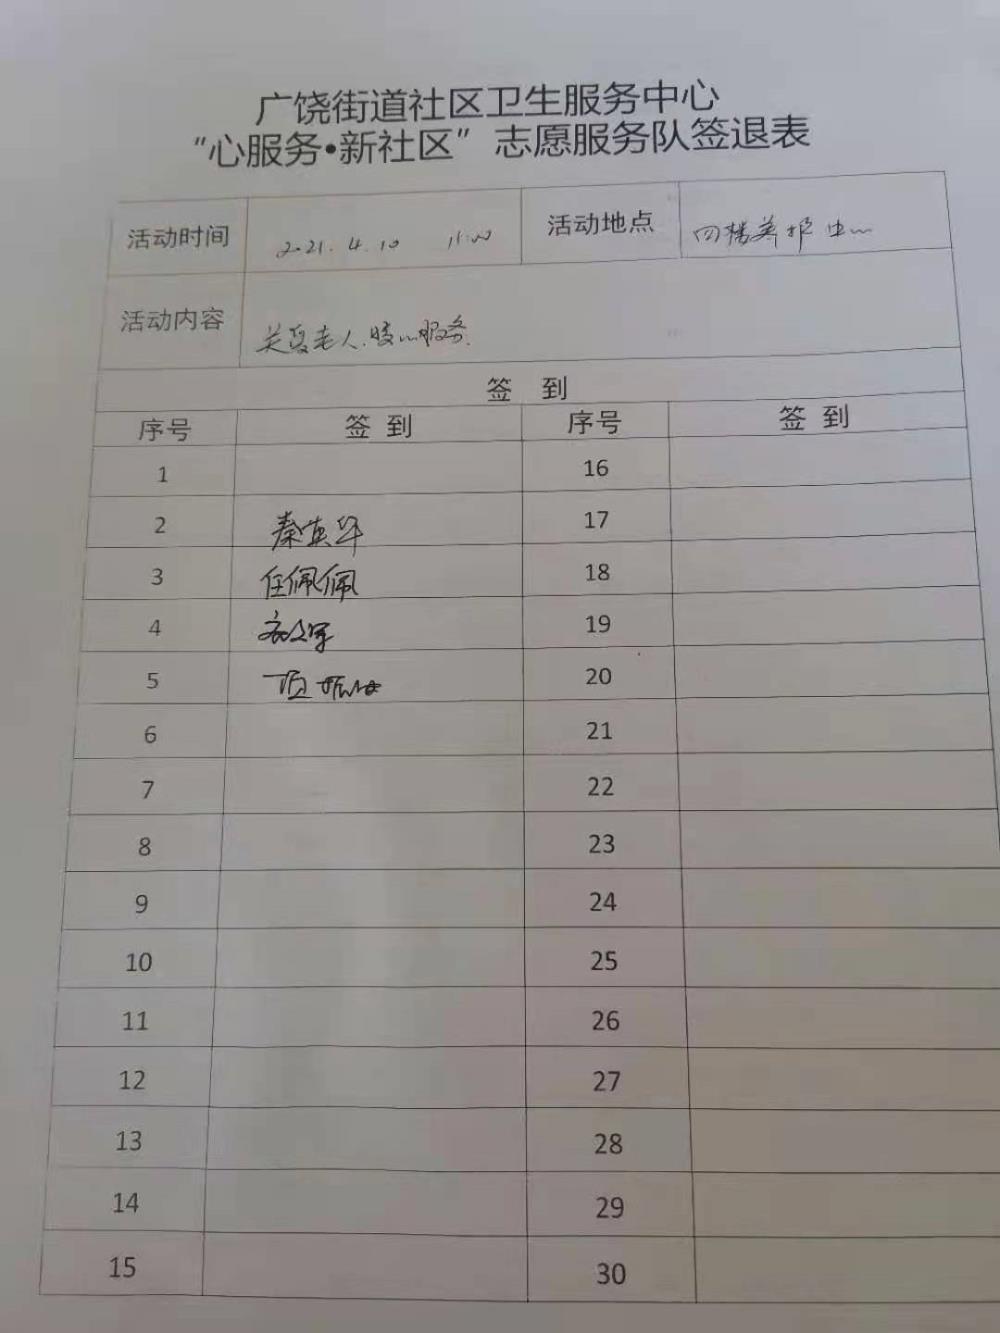 广饶街道社区卫生服务中心
“心服务•新社区”志愿服务队签退表
活动时间 2021.4.10 11:00 活动地点 四楼养护中心
活动内容 关爱老人.暖心服务.
签 到
序号 签到 序号 签到
1 16
2 秦英华 17
3 任佩佩 18
4 19
5 20
6 21
7 22
8 23
9 24
10 25
11 26
12 27
13 28
14 29
15 30